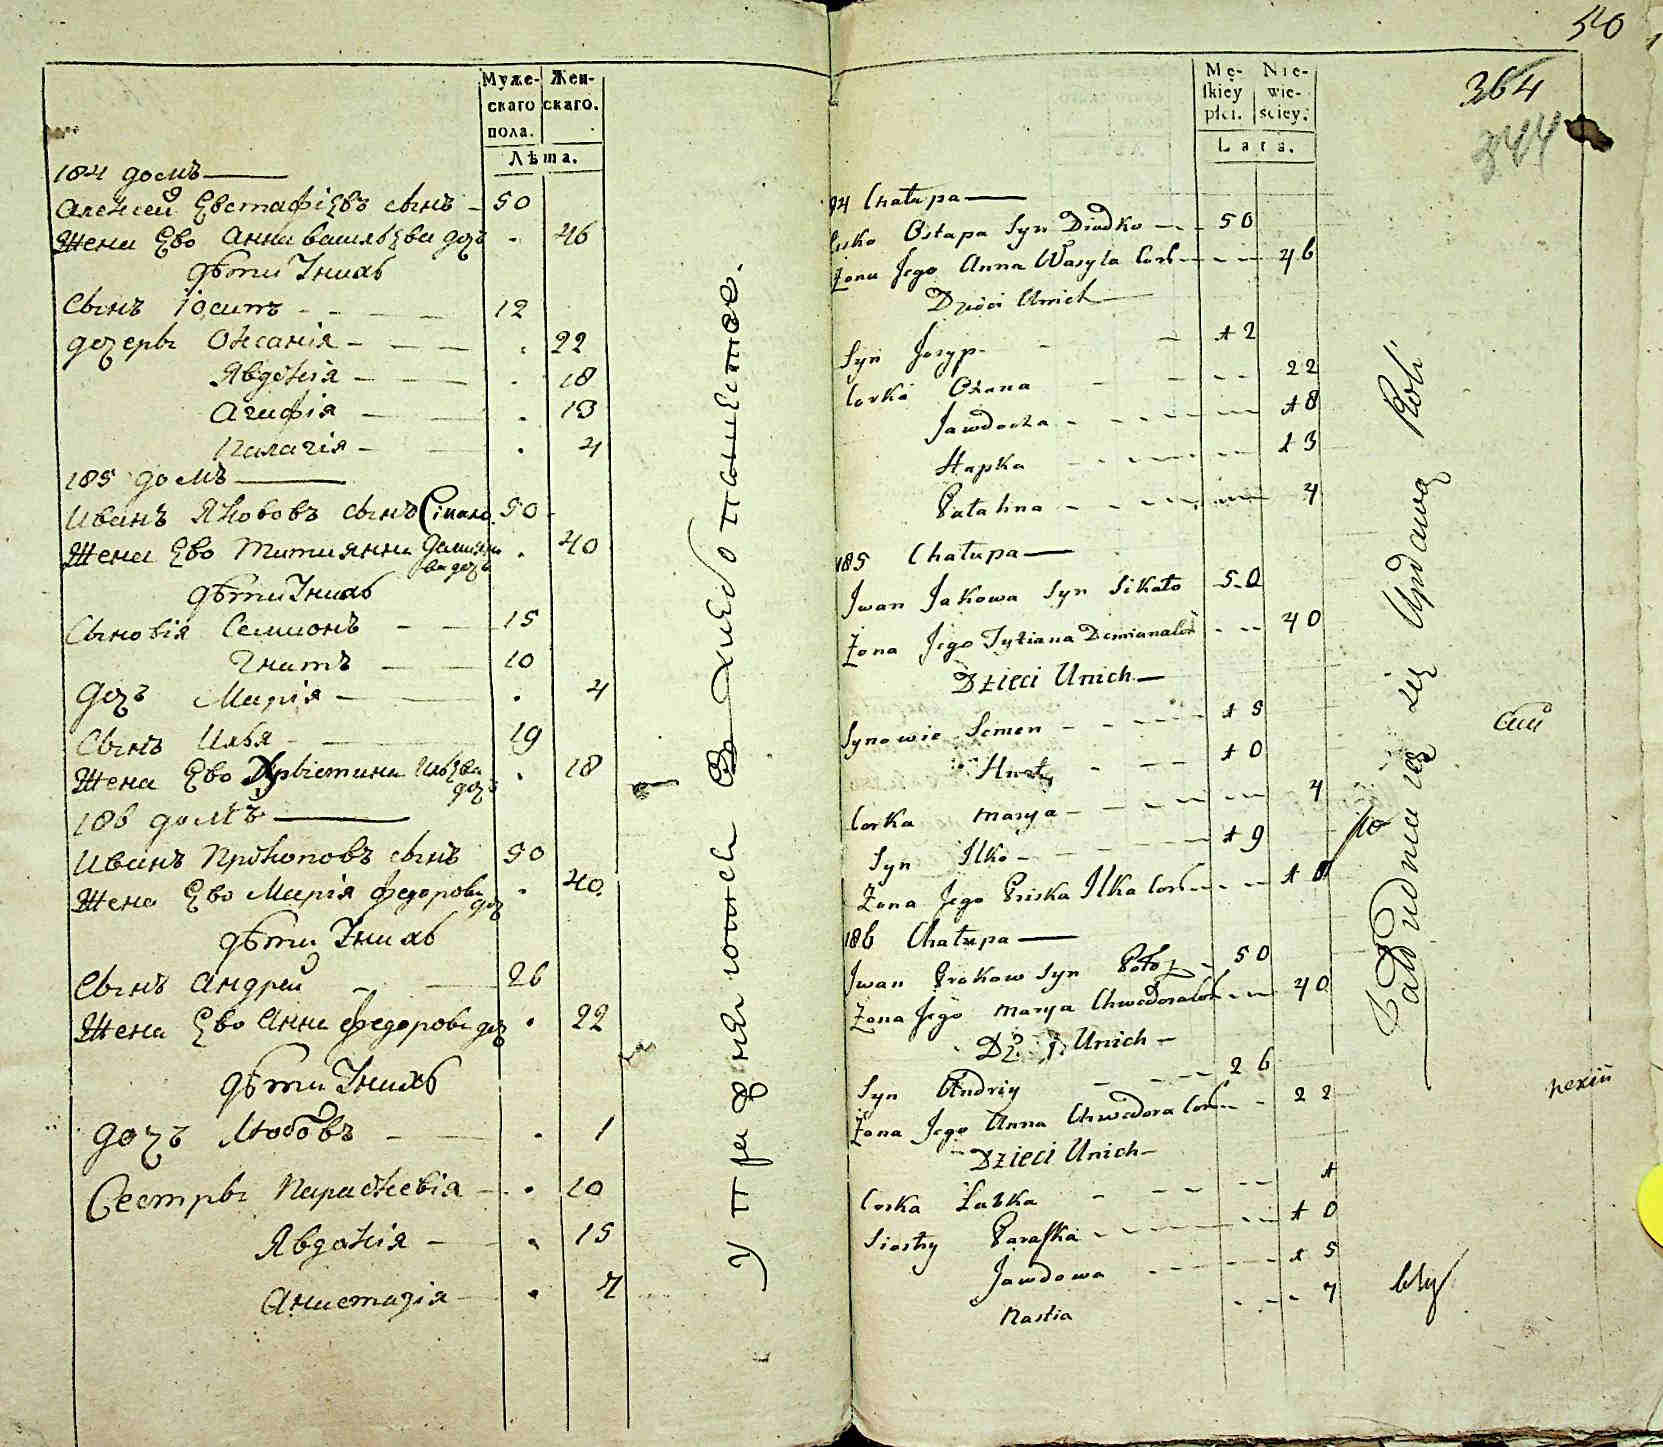 Муже-
скаго
пола.
Жен-
скаго.
Лѣта.
184 домъ
Алексей Евстафіевъ сынъ - 50
Жена Ево Анна васильева доч . 46
дѣти Iнихъ
Сынъ Іосипъ - - 12
дочеры Оксанія - . 22
Явдокія - . 18
Агафія - . 13
Палагія - . 4
185 домъ
Иванъ Якововъ сынъ Сікало. 50
Жена Ево Татиянна Дамиянова доч . 40
дѣти Iнихъ
Сыновія Семионъ - 15
Iгнатъ - 10
Дочъ Марія - . 4
Сынъ Илья - 19
Жена Ево Хрістина Ильева доч . 18
186 домъ
Иванъ Прокоповъ сынъ 50
Жена Ево Марія федорова доч . 40.
дѣти Iнихъ
Сынъ Андрей - 26
Жена Ево Анна федорова доч . 22
дѣти Iнихъ
дочъ Любовъ - . 1
Сестры Параскевія - . 10
Явдокія - . 15
Анастазія - . 7
Упражняются в хлебопашестве.
50
364
344
Mę-
skiey
płci.
Nie-
wie-
sciey.
Lata.
84 Chałupa
Ostapa Syn Diadko - - 50
Żona Jego Anna Wasyla Cor - - 46
Dzieci Unich
Syn Josyp - - 12
Corka Oxana - - 22
Jawdocha - - 18
Hapka - - 13
Patahna - - 4
185 Chałupa
Jwan Jakowa Syn Sikało 50
Żona Jego Tytiana Demiana Cor - - 40
Dzieci Unich
Synowie Semen - - 15
Hnat - - 10
Corka Marya - - 4
Syn Ilko - - 19
Żona Jego Priska Ilka Cor - - 18
186 Chałupa
Jwan Prokow Syn - 50
Żona Jego Marya Chwedora Cor - - 40
Unich
Syn Andriy - - 26
Żona Jego Anna Chwedora Cor - - 22
Dzieci Unich
Corka Lubka - - 1
Siostry Paraska - - 10
Jawdowa - - 15
Nastia - - 7
Zatrudniaią się Uprawą Roli